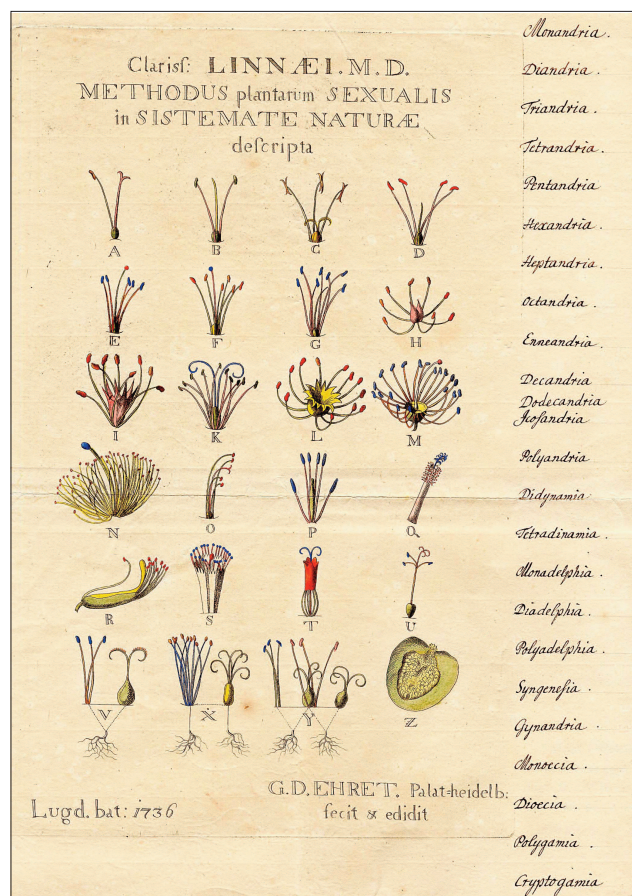 Clariſſ: LINNÆI. M. D.
METHODUS plantarum SEXUALIS
in SISTEMATE NATURÆ
deſcripta
A B C D
E F G H
I K L M
N O P Q
R S T U
V X Y Z
Lugd. bat: 1736
G. D. EHRET. Palat=heidelb:
fecit & edidit
Monandria.
Diandria.
Triandria.
Tetrandria.
Pentandria
Hexandria.
Heptandria.
Octandria.
Enneandria.
Decandria
Dodecandria
Jcosandria.
Polyandria
Didynamia
Tetradinamia.
Monadelphia.
Diadelphia.
Polyadelphia.
Syngenesia.
Gynandria.
Monoecia.
Dioecia.
Polygamia.
Cryptogamia